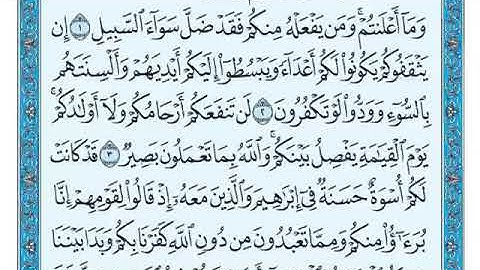 وَمَآ أَعۡلَنتُمۡۚ وَمَن يَفۡعَلۡهُ مِنكُمۡ فَقَدۡ ضَلَّ سَوَآءَ ٱلسَّبِيلِ ١ إِن
يَثۡقَفُوكُمۡ يَكُونُواْ لَكُمۡ أَعۡدَآءٗ وَيَبۡسُطُوٓاْ إِلَيۡكُمۡ أَيۡدِيَهُمۡ وَأَلۡسِنَتَهُم
بِٱلسُّوٓءِ وَوَدُّواْ لَوۡ تَكۡفُرُونَ ٢ لَن تَنفَعَكُمۡ أَرۡحَامُكُمۡ وَلَآ أَوۡلَٰدُكُمۡۚ
يَوۡمَ ٱلۡقِيَٰمَةِ يَفۡصِلُ بَيۡنَكُمۡۚ وَٱللَّهُ بِمَا تَعۡمَلُونَ بَصِيرٞ ٣ قَدۡ كَانَتۡ
لَكُمۡ أُسۡوَةٌ حَسَنَةٞ فِيٓ إِبۡرَٰهِيمَ وَٱلَّذِينَ مَعَهُۥٓ إِذۡ قَالُواْ لِقَوۡمِهِمۡ إِنَّا
بُرَءَٰٓؤُاْ مِنكُمۡ وَمِمَّا تَعۡبُدُونَ مِن دُونِ ٱللَّهِ كَفَرۡنَا بِكُمۡ وَبَدَا بَيۡنَنَا